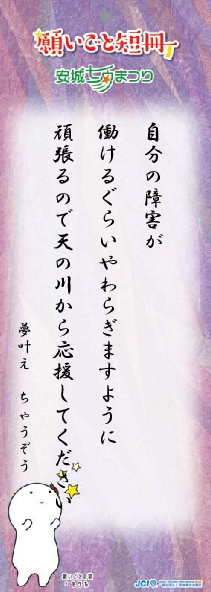 願いごと短冊
安城七夕まつり
自分の障害が
働けるぐらいやわらぎますように
頑張るので天の川から応援してください
夢叶え ちゃうぞう
JCI